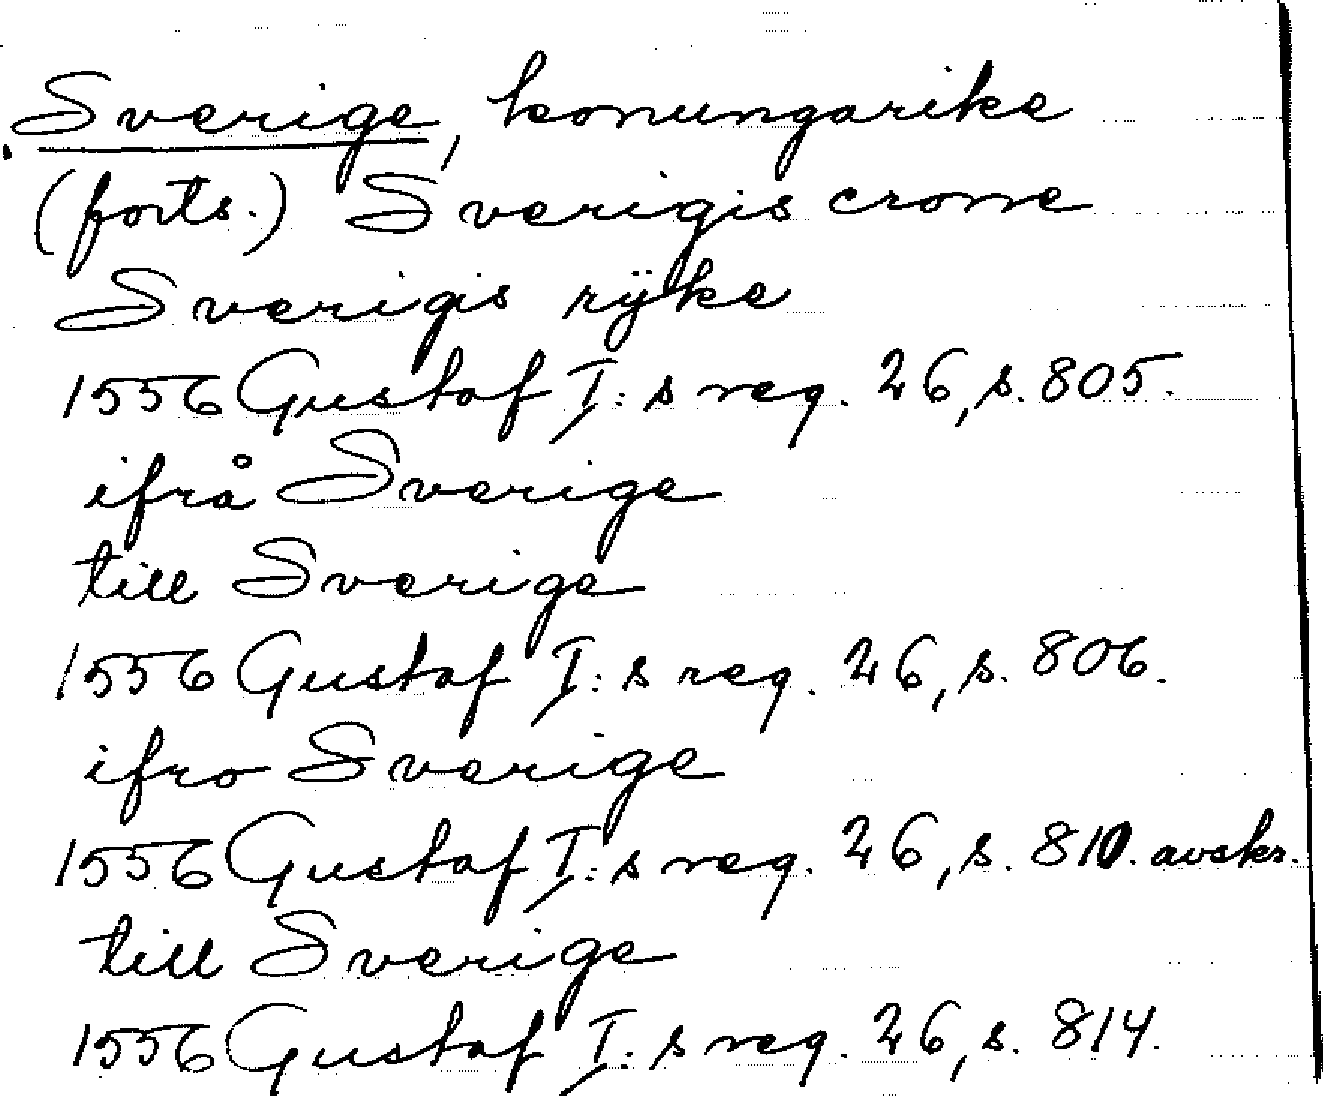 Sverige, konungarike
(forts.) Sverigis crone
Sverigis rÿke
1556 Gustaf I:s reg. 26, s. 805.
ifrå Sverige
till Sverige
1556 Gustaf I:s reg. 26, s. 806.
ifro Sverige
1556 Gustaf I:s reg. 26, s. 810. avskr.
till Sverige
1556 Gustaf I:s reg. 26, s. 814.